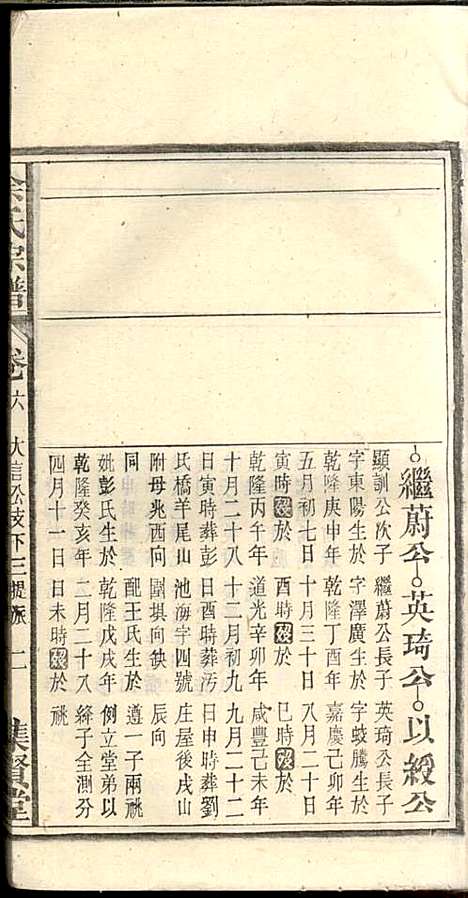 繼蔚公 英琦公 以綬公
顯訓公次子
字東陽生於
乾隆庚申年
五月初七日
寅時歿於
乾隆丙午年
十月二十八
日寅時葬彭
氏橋羊尾山
附母兆酉向
同
妣彭氏生於
乾隆癸亥年
四月十一日
繼蔚公長子
字澤廣生於
乾隆丁酉年
十月三十日
酉時歿於
道光辛卯年
十二月初九
日酉時葬汚
池海字四號
圍㙇向缺
配王氏生於
乾隆戊戌年
二月二十八
日未時歿於
英琦公長子
字蛟騰生於
嘉慶己卯年
八月二十日
巳時歿於
咸豐己未年
九月二十二
日申時葬劉
庄屋後戌山
辰向
遵一子兩祧
例立堂弟以
綘子全測分
祧
余氏宗譜
卷六 大言公支下三提派 二
集賢堂